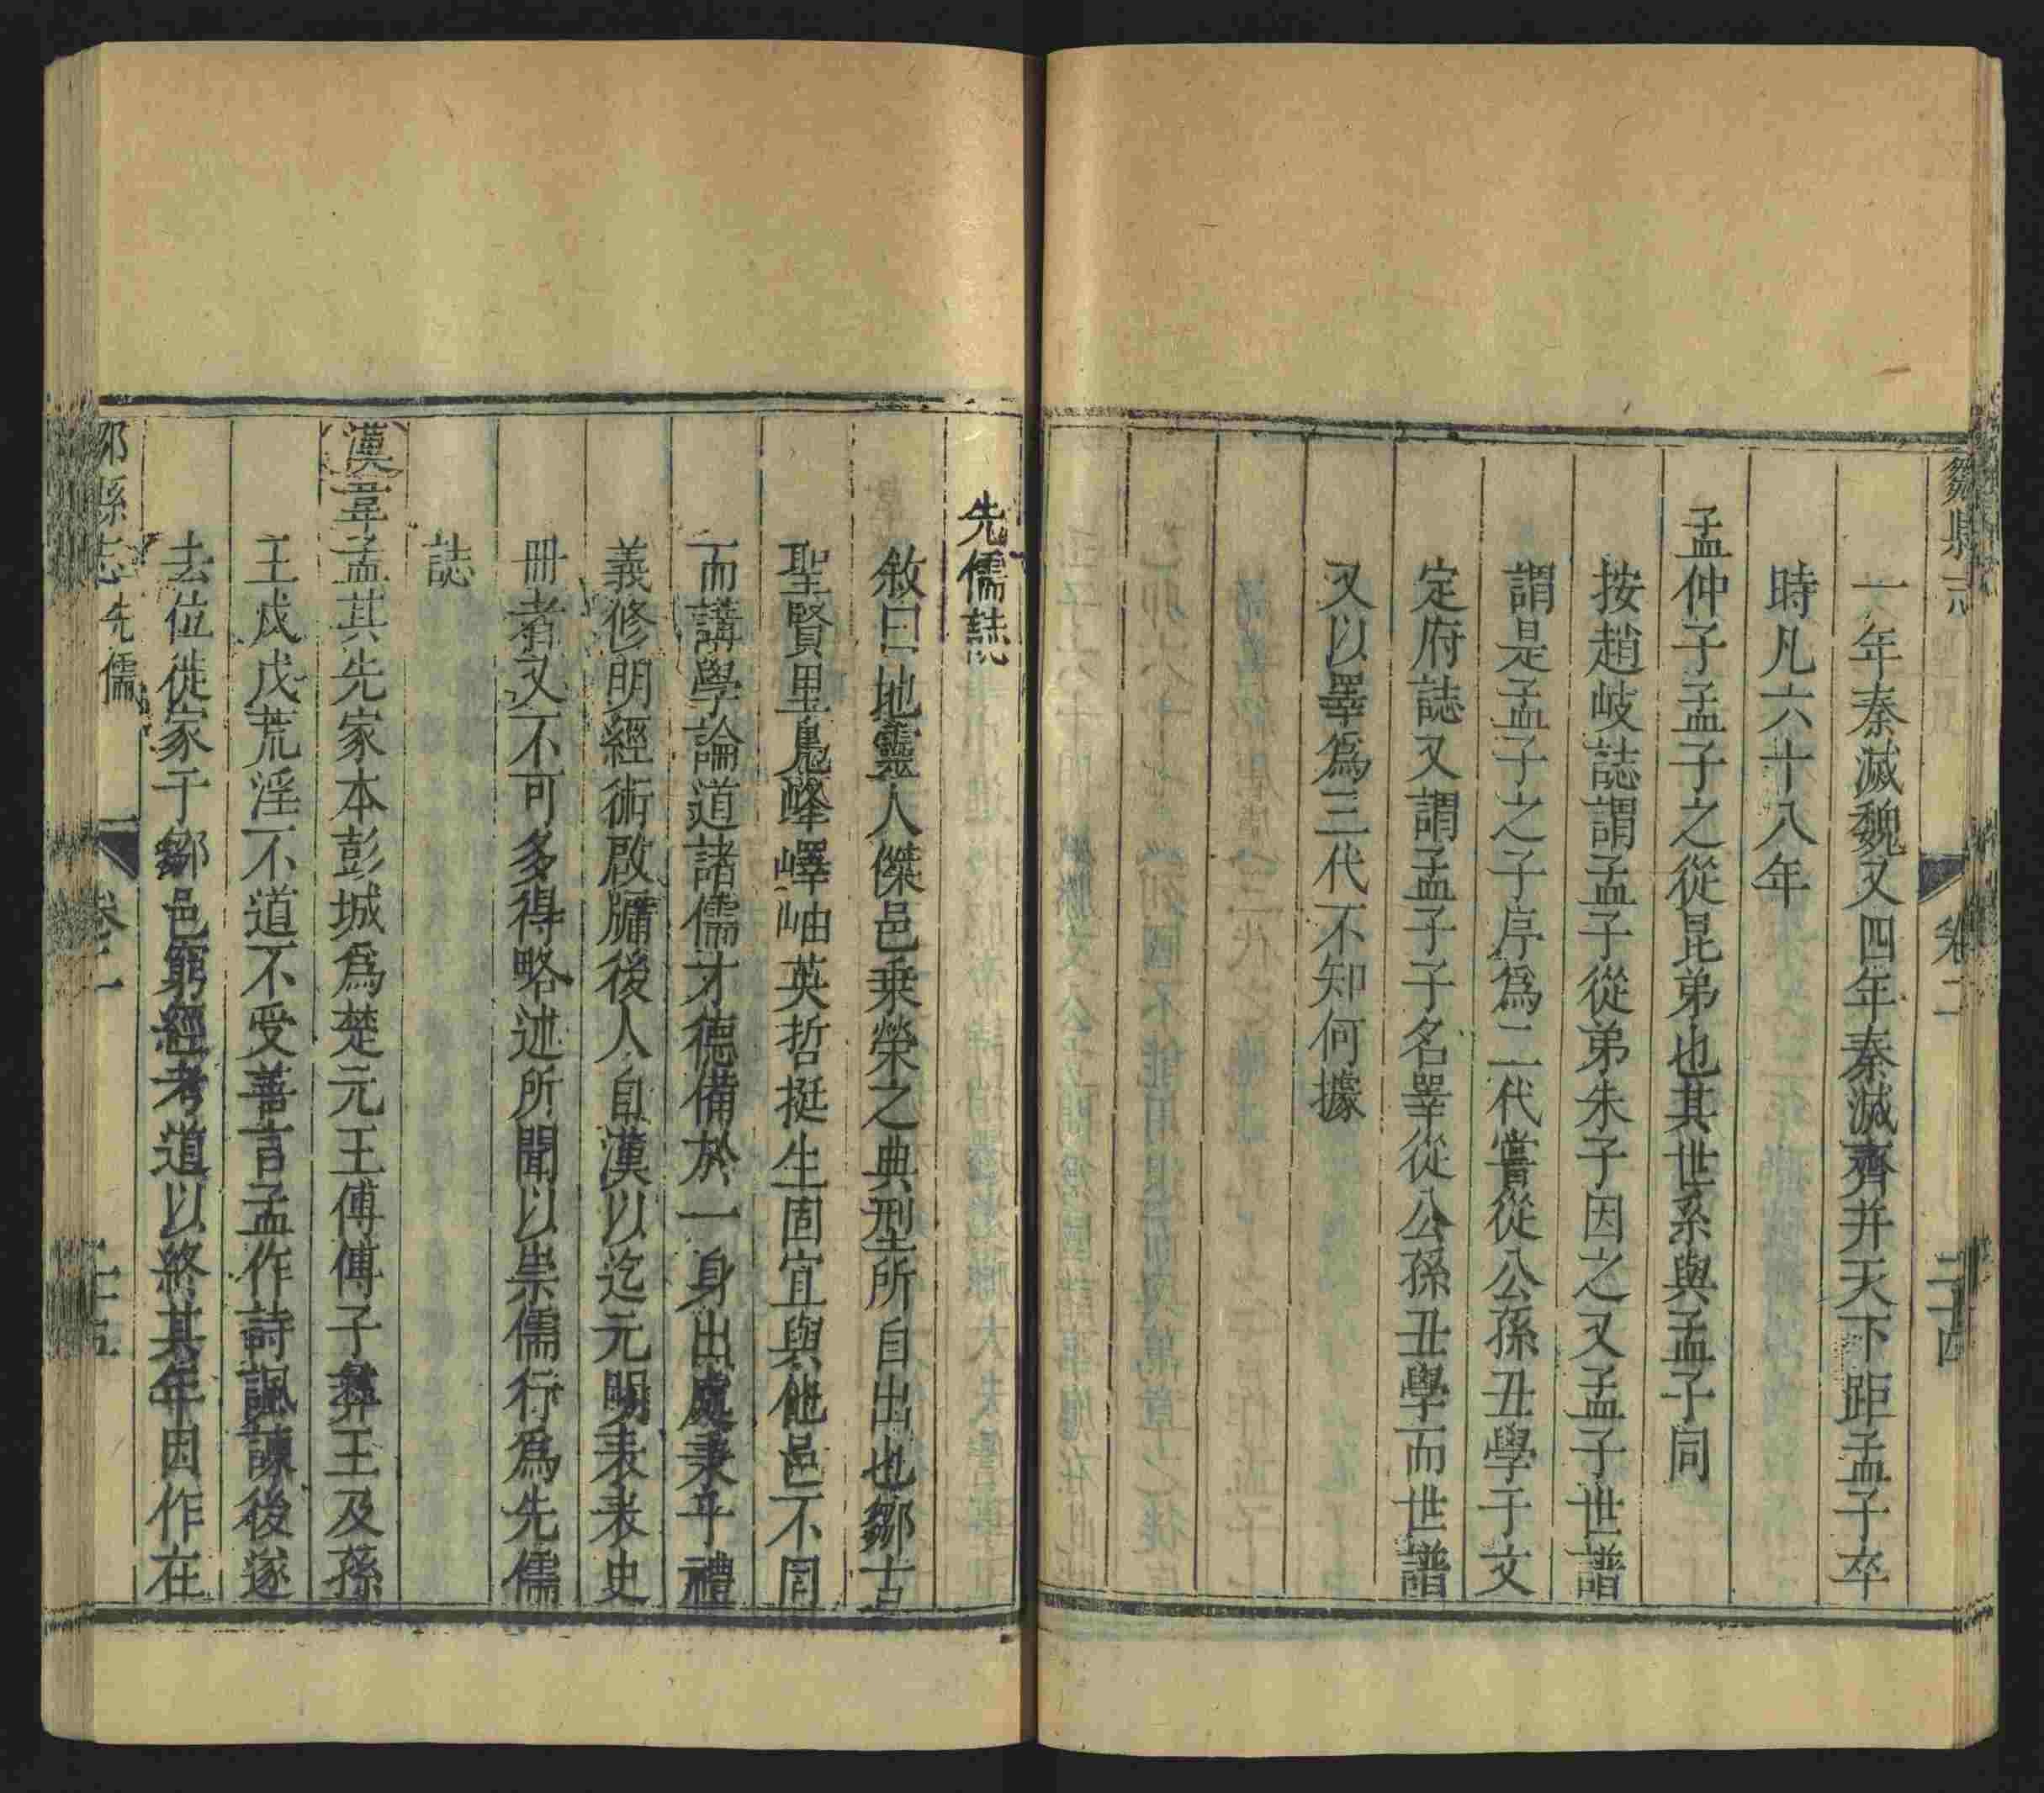 鄒縣志
卷二
二十四
一年秦滅魏又四年秦滅齊并天下距孟子卒
時凡六十八年
孟仲子孟子之從昆弟也其世系與孟子同
按趙岐誌謂孟子從弟朱子因之又孟子世譜
謂是孟子之子序爲二代嘗從公孫丑學于文
定府誌又謂孟子子名睪從公孫丑學而世譜
又以睪爲三代不知何據
先儒誌
敘曰地靈人傑邑乗榮之典型所自出也鄒古
聖賢里鳬嶧嶧岫英哲挺生固宜與他邑不同
而講學論道諸儒才德備於一身出處秉乎禮
義修明經術啟牖後人自漢以迄元明表表史
冊者又不可多得略述所聞以崇儒行爲先儒
誌
漢韋孟其先家本彭城爲楚元王傅傅子彝王及孫
王戊戊荒淫不道不受善言孟作詩諷諫後遂
去位徙家于鄒邑窮經考道以終其年因作在
縣志先儒
卷二
二十五